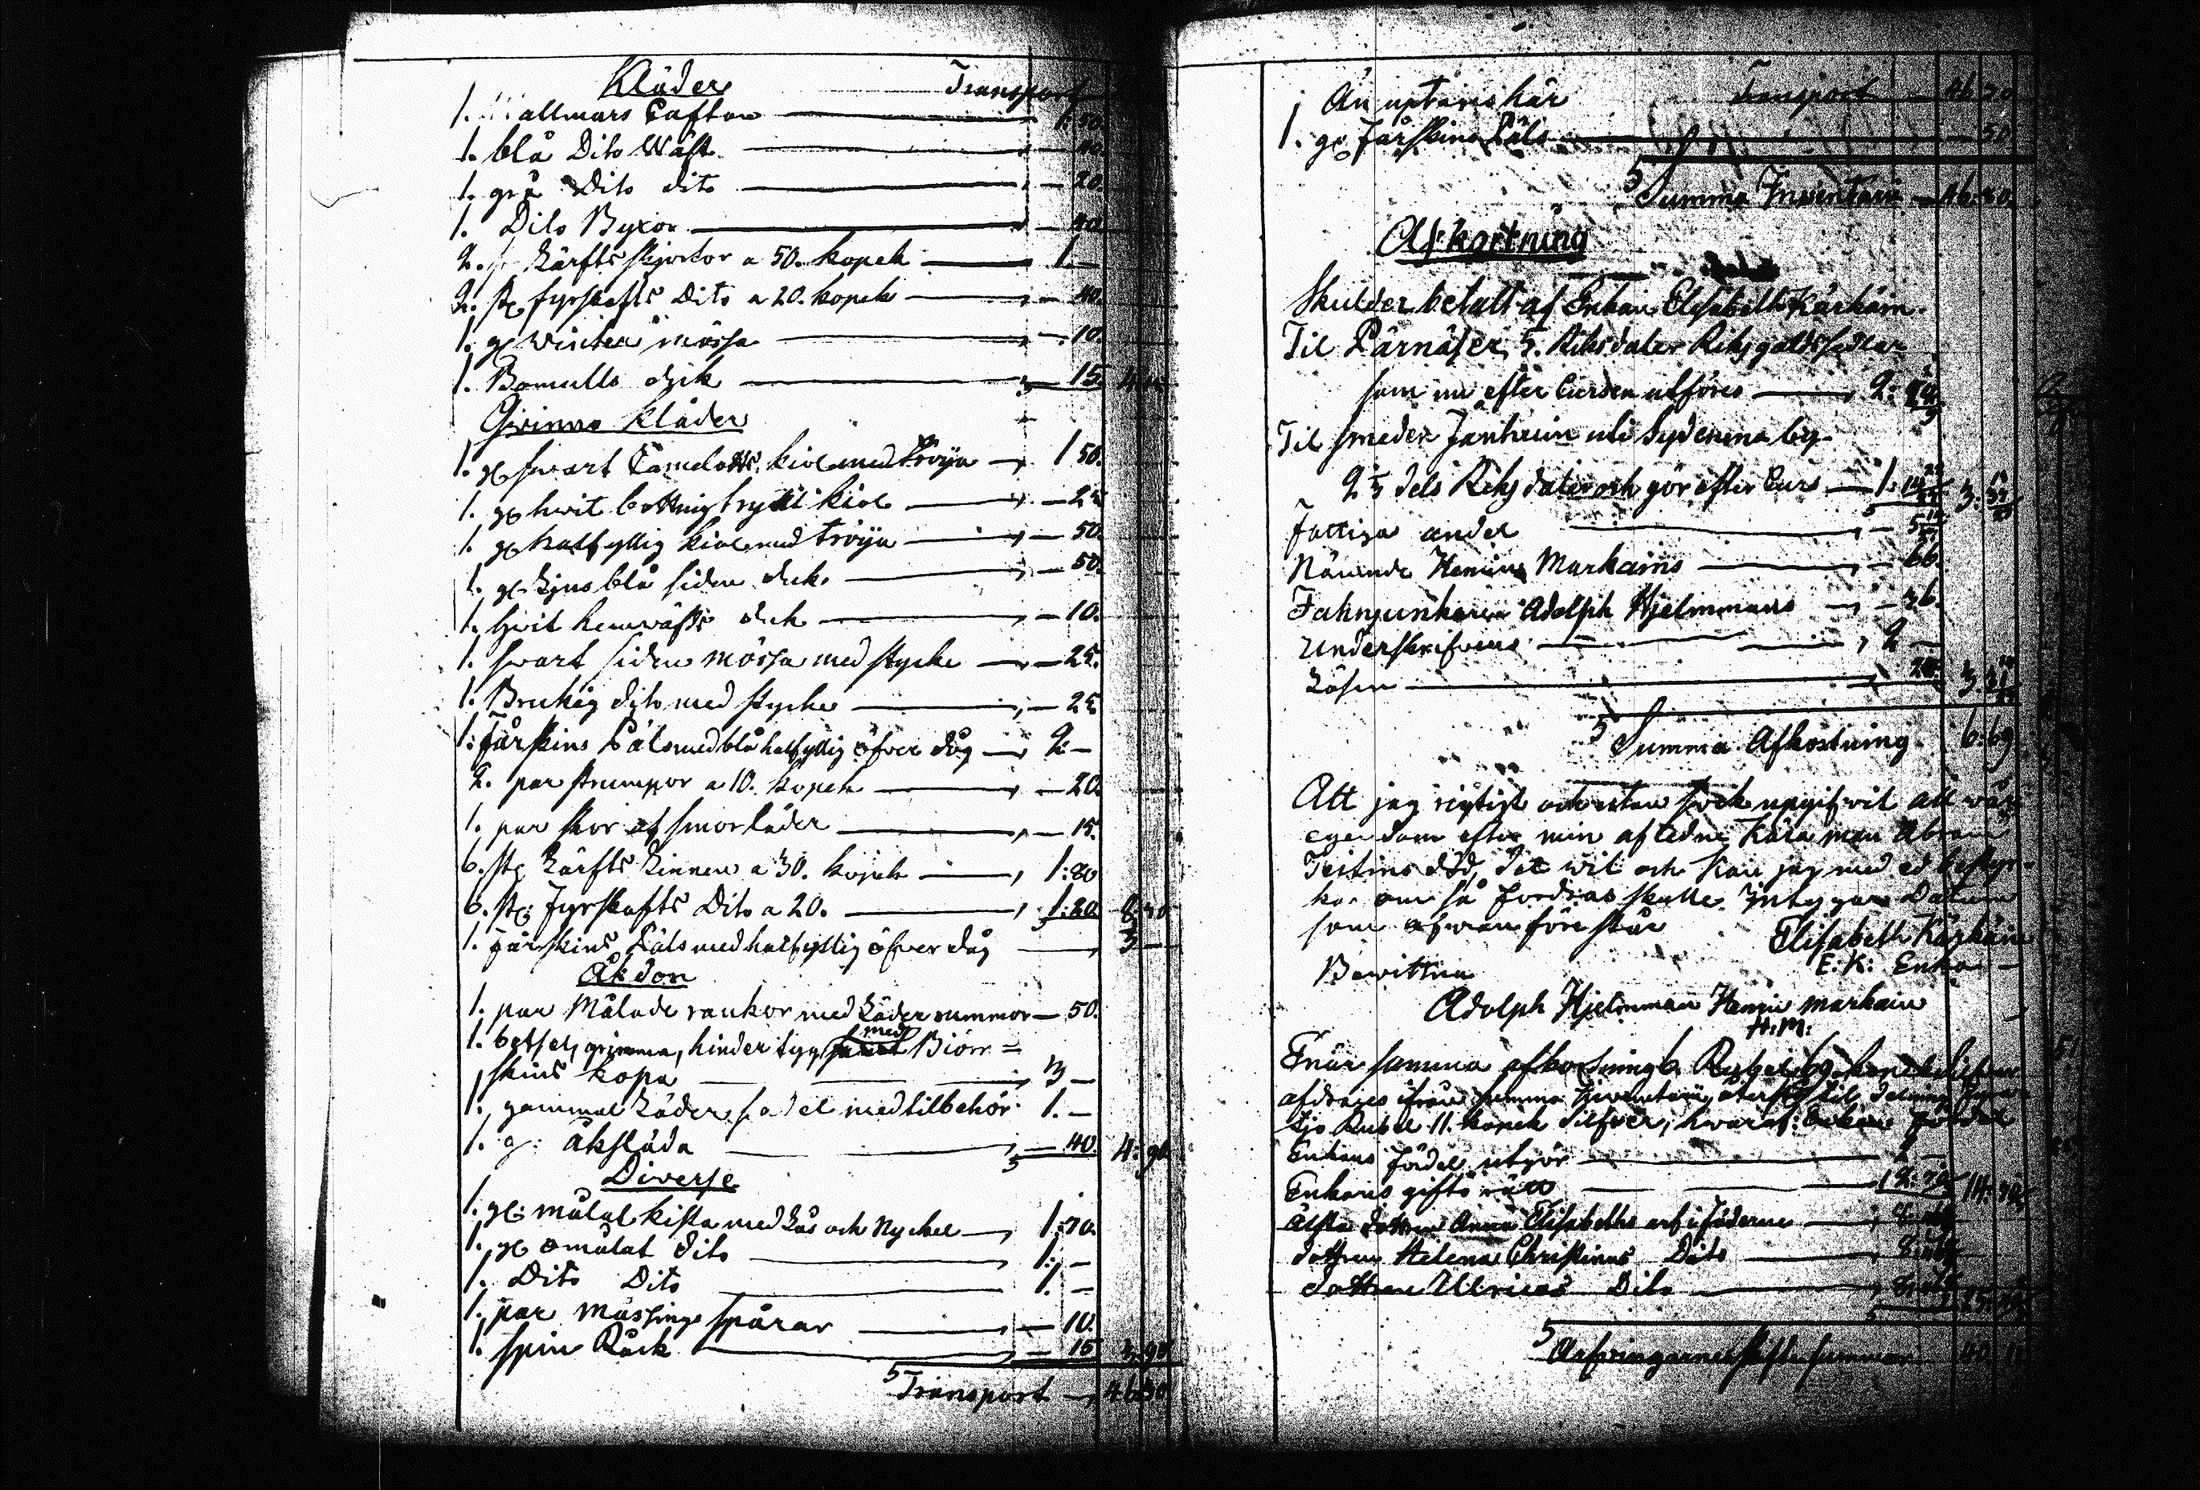 Kläder Transport
1. Wallmars Caftan — 1:50.
1. blå Dito Wäst — 40.
1. grå Dito dito — 20.
1. Dito Byxor — 40.
2. Lärfts skjortor a 50. kopek — 1.—
2. st fyrskafts Dito a 20. kopek — 40.
1. gl winter mössa — 10.
1. Bomulls — 15.
Qvinno Kläder
1. gl swart Camelotts kiol med tröya — 1 50.
1. gl hwit kiol — 25
1. gl halfyllig kiol med tröya — 50.
1. gl ljusblå siden duk — 50.
1. hwit hemväfs duk — 10.
1. swart siden mössa med stycke — 25.
1. Brukig dito med stycke — 25
1. Fårskins Päls med blå halfyllig öfver dug — 2.—
2. par strumpor a 10. kopek — 20.
1. par skor af smorläder — 15.
6. st Lärfts Linnen a 30. kopek — 1:80
6. st: Fyrskafts Dito a 20. — 1:20.
1. Fårskins Päls med halfyllig öfver dug — 3 —
Åkdon
1. par Målade rankor med Läder rummor — 50.
1. betsel, grimma, hinder tyg med Biörn=
skins kopa — 3 —
1. gammal Läder sadel med tilbehör 1.—
1. g: åksläda — 40. 4:90
Diverse
1. gl: målat kista med Lås och Nyckel — 1:70.
1. gl omålat dito — 1:—
1. Dito Dito — 1.—
1. par Mässings spårar — 10.
1. spin Råck — 15 3:95
Transport — 46:30
Än uptäres här Transport — 46 30
1. gl Fårskins Päls — 50
Summa Inventarii — 46:80.
Afkortning
Skulder betalt af Enkan Elisabeth Kärkäin.
Til Pärnäser 5. Riksdaler Riksgäldssedlar
som nu efter Cursen utföres — 2:
Til smeden uti Sydänma by
2 1/3 dels Riksdaler och gör efter Curs — 1:
Fattiga andel — 5
Nämnde Henric Markains — 66.
Fahnjunkaren Adolph Hjelmmans — 36.
Underskrifvens — 2 —
Lösen — 24. 3:
Summa Afkortning 6:69
Att jag rigtigt och utan svek upgifvit all vår
egendom efter min afledne Kära man Abram
Teitins död, det wil och kan jag med ed bestyr-
ka om så fordras skulle. Intygar Datum
som ofvan före står Elisabeth Kärkäin
Bewittna E:K: Enka —
Adolph Hjelmman Henric Markain
H:M:
När samma afkortning 6 Rubel 69 kopek silfver
afdrages ifrån summa Inventarii, återstår til delning fyra-
tjo Rubel 11. kopek silfver, hwaraf: Enkans fördel
Enkans fördel utgör — 2 —
Enkans gifto rätt — 12:70
Älsta dottren Anna Elisabeths arf i fäderne — 8:
dottren Helena Christinas Dito — 8:
dottren Ulricas Dito — 8:
Arfvingarnes Skifte summor 40 11